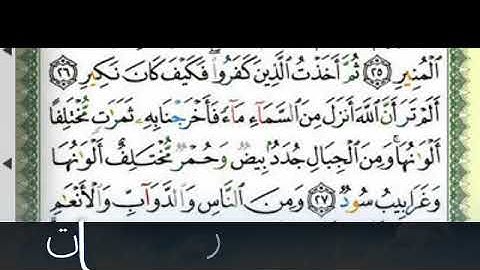 الْمُنِيرِ ٢٥ ثُمَّ أَخَذْتُ الَّذِينَ كَفَرُوا۟ ۖ فَكَيْفَ كَانَ نَكِيرِ ٢٦
أَلَمْ تَرَ أَنَّ اللَّهَ أَنزَلَ مِنَ السَّمَآءِ مَآءً فَأَخْرَجْنَا بِهِۦ ثَمَرَٰتٍ مُّخْتَلِفًا
أَلْوَٰنُهَا ۚ وَمِنَ الْجِبَالِ جُدَدٌۢ بِيضٌ وَحُمْرٌ مُّخْتَلِفٌ أَلْوَٰنُهَا
وَغَرَابِيبُ سُودٌ ٢٧ وَمِنَ النَّاسِ وَالدَّوَآبِّ وَالْأَنْعَٰمِ